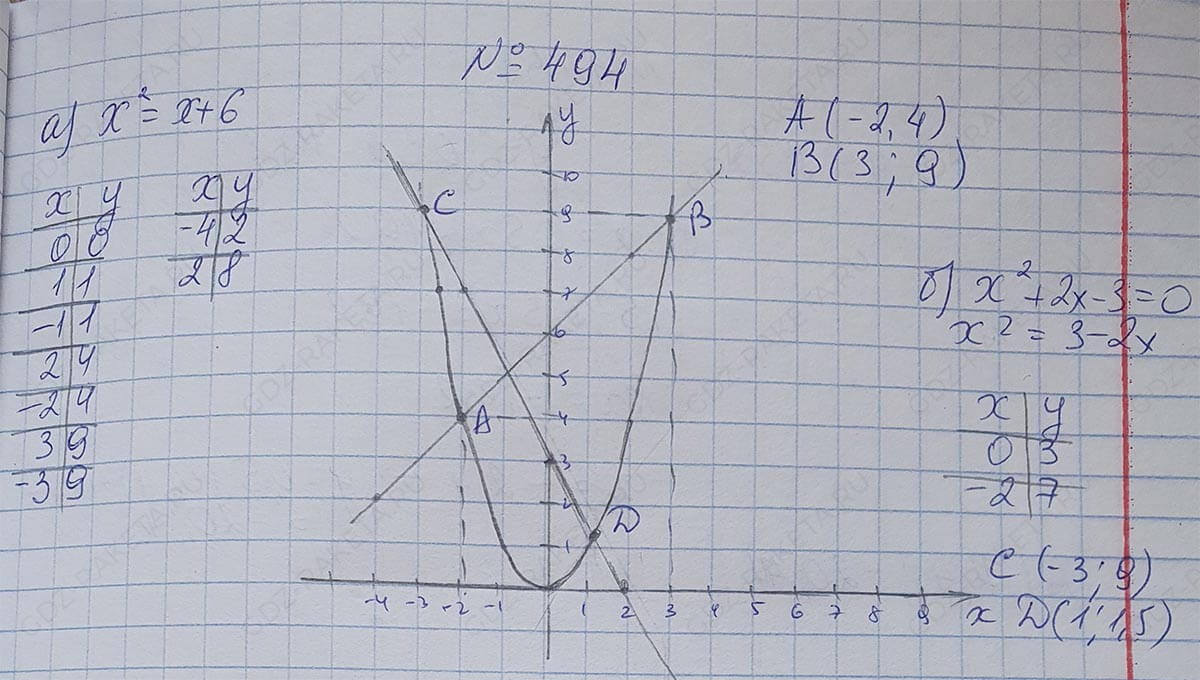 № 494
а) x² = x+6
x | y
0 | 0
1 | 1
-1 | 1
2 | 4
-2 | 4
3 | 9
-3 | 9
x | y
-4 | 2
2 | 8
A(-2,4)
B(3; 9)
y
10
9
8
7
6
5
4
3
2
1
C
B
A
D
-4 -3 -2 -1 1 2 3 4 5 6 7 8 9 x
б) x² + 2x - 3 = 0
x² = 3 - 2x
x | y
0 | 3
-2 | 7
C (-3; 9)
D(1; 1,5)
GDZ-RAKETA.RU